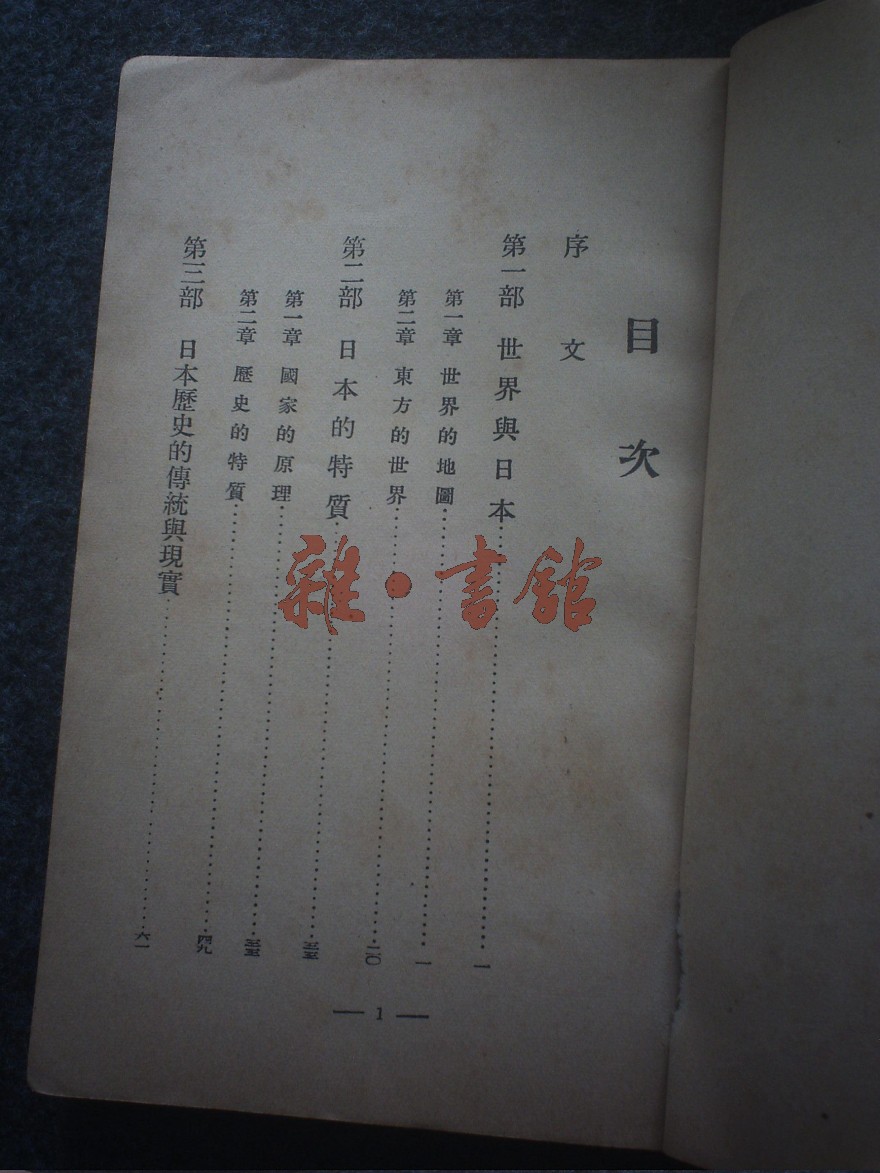 目次
序文
第一部 世界與日本……一
第一章 世界的地圖……一
第二章 東方的世界……二〇
第二部 日本的特質……三五
第一章 國家的原理……三五
第二章 歷史的特質……四九
第三部 日本歷史的傳統與現實……六一
— 1 —
雜·書館